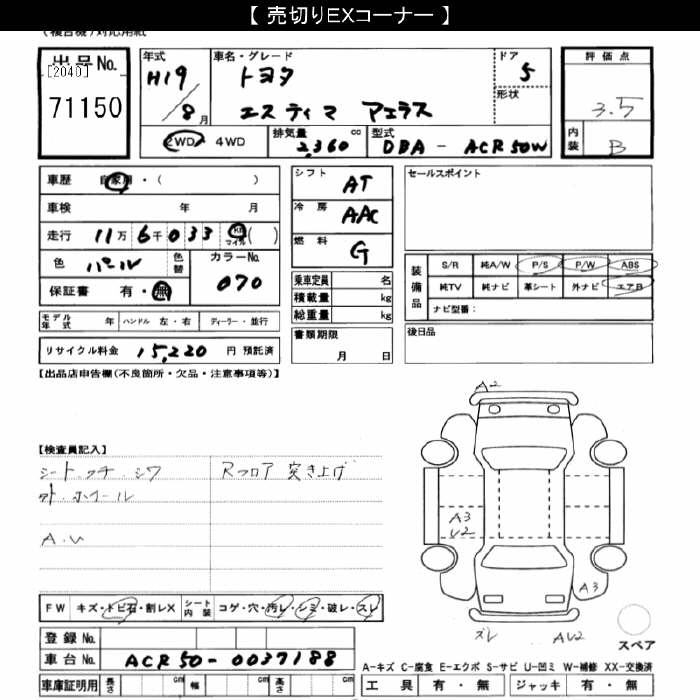 【 売切りEXコーナー 】
出品No.
[2040]
71150
年式
H19/8月
車名・グレード
トヨタ
エスティマ アエラス
ドア
5
形状
評価点
3.5
内装
B
2WD 4WD
排気量
2,360 cc
型式
DBA - ACR50W
車歴 自家用・( )
車検 年 月
走行 11万6千033 km マイル ( )
色 パール 色替
カラーNo.
070
保証書 有・無
モデル年式 年 ハンドル 左・右 ディーラー・並行
リサイクル料金 15,220 円 預託済
シフト AT
冷房 AAC
燃料 G
乗車定員 名
積載量 kg
総重量 kg
書類期限
月 日
セールスポイント
装備品
S/R 純A/W P/S P/W ABS
純TV 純ナビ 革シート 外ナビ エアB
ナビ型番:
後日品
【出品店申告欄(不良箇所・欠品・注意事項等)】
【検査員記入】
シート.コゲ.シワ
Rフロア 突き上げ
ホイール
A.U
A2
A3
U2
A3
ズレ
AU2
FW キズ・トビ石・割レX シート内装 コゲ・穴・汚レ・シミ・破レ・スレ
登録No.
車台No. ACR50-0037188
車庫証明用 長さ cm 幅 cm 高さ cm
スペア
A-キズ C-腐食 E-エクボ S-サビ U-凹ミ W-補修 XX-交換済
工具 有・無 ジャッキ 有・無